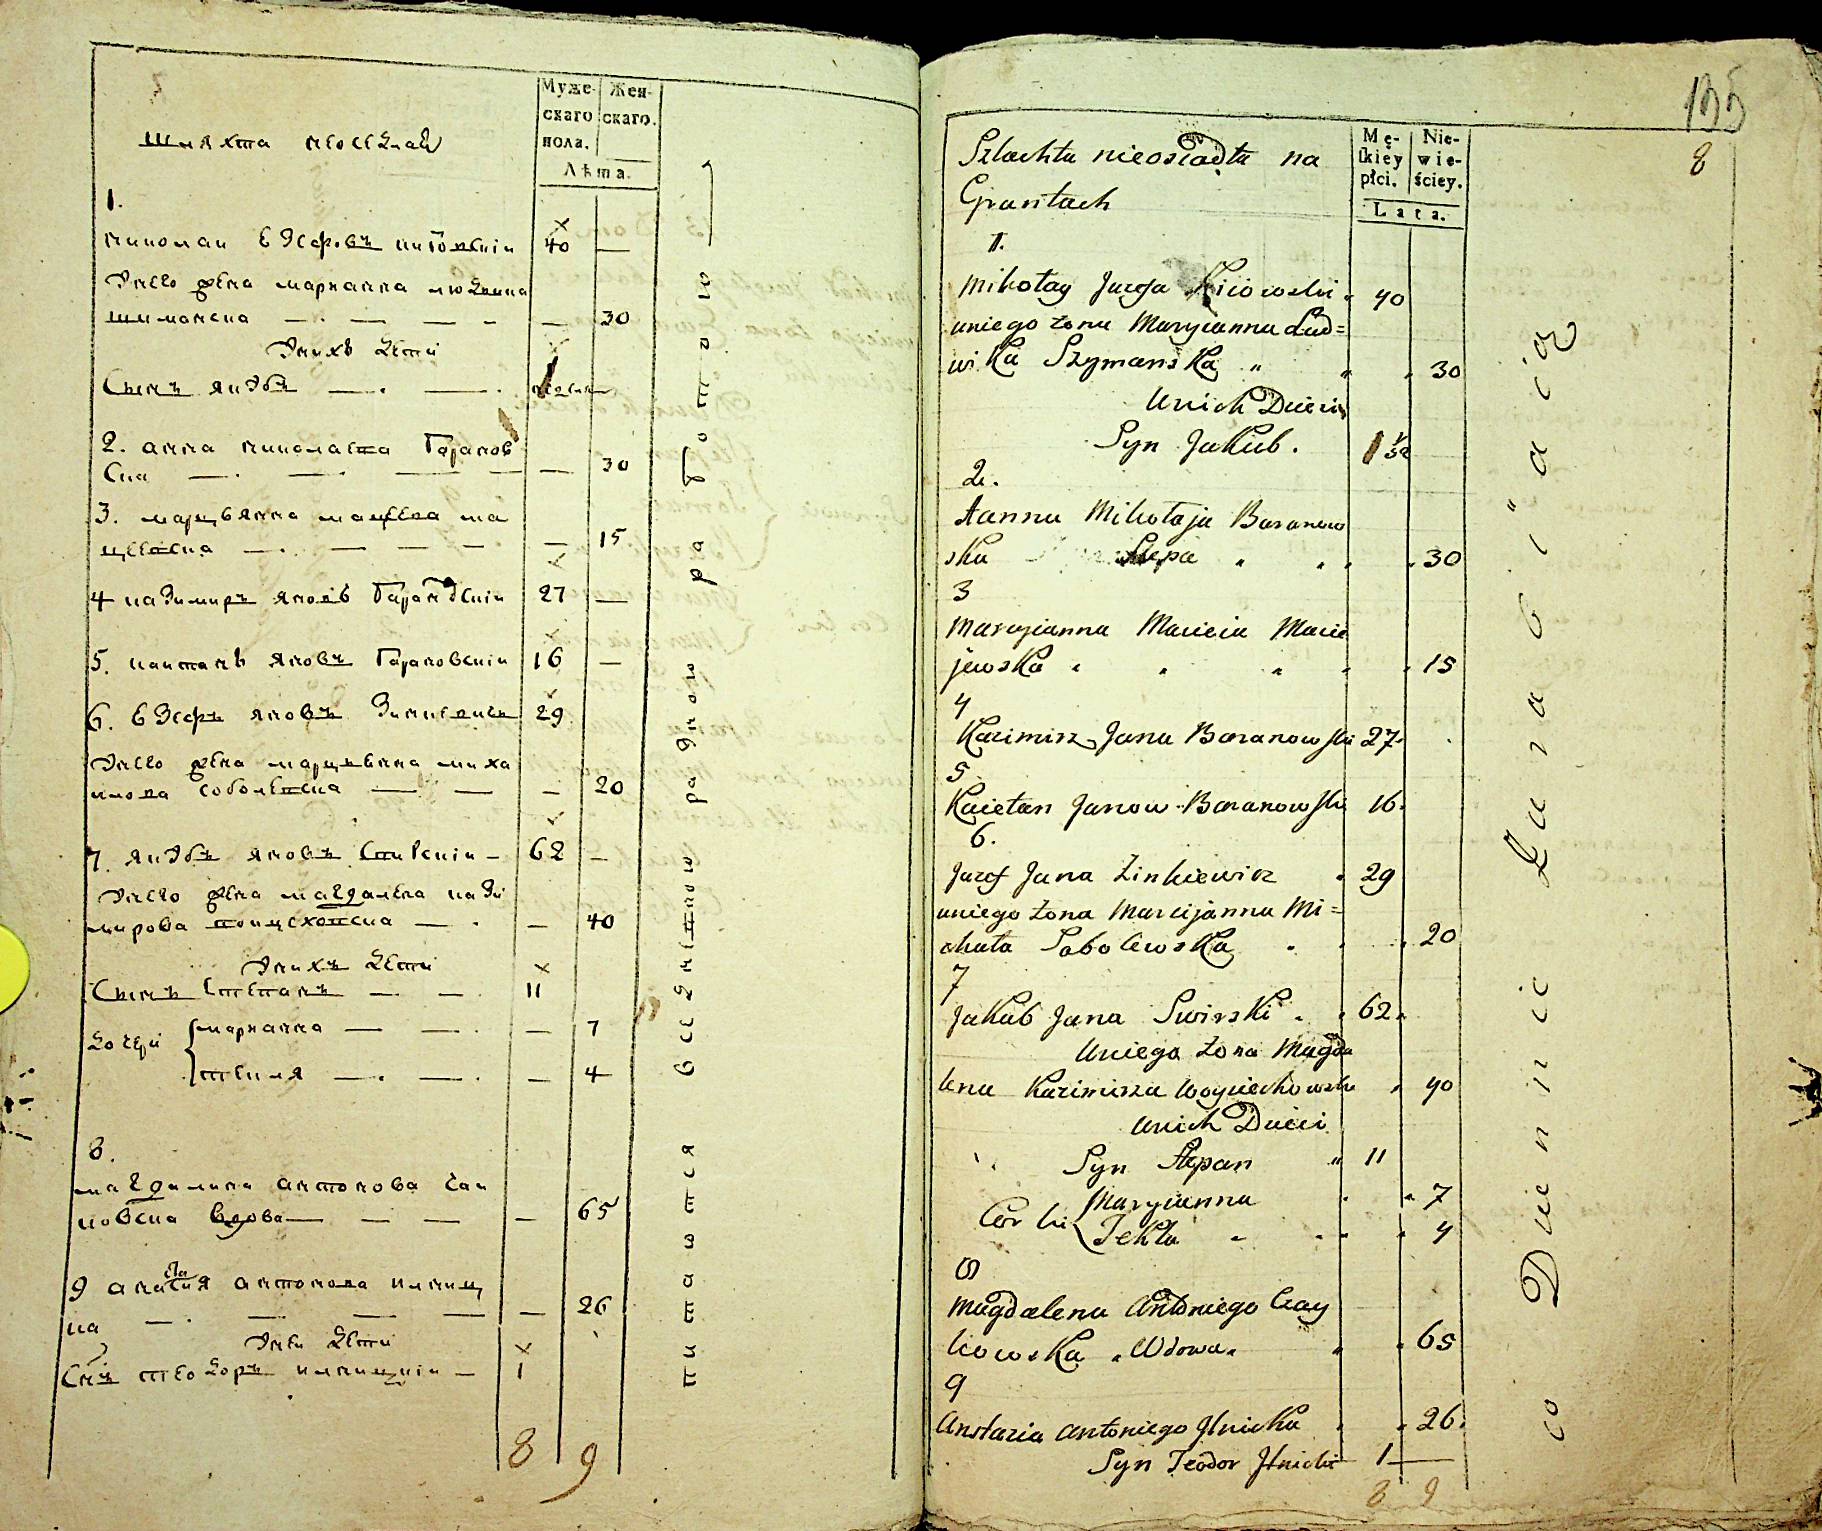 Муже-
скаго
пола.
Жен-
скаго.
Лѣта.
шляхта неосѣдлая
1.
николай Еэсфовъ
40 —
Унего жена марианна
шиманска — — — — — 30
Унихъ дѣти
Сынъ якубъ — —
2. анна николаева Баранов
ска — — — — 30
3. марцыянна мацѣева ма
цеевска — — — — — 15
4 казимиръ яновъ Барановскіи 27 —
5. каитанъ яновъ Барановскіи 16 —
6. Еэсфъ яновъ Зинкевичъ 29
Унего жена марцыянна миха
илова соболевска — — — 20
7. якубъ яновъ Свирскіи — 62 —
Унего жена магдалена кази
мирова воицеховска — — 40
Унихъ дѣти
Сынъ Степанъ — — 11
Дочери марианна — — — 7
текля — — — 4
8.
магдалина антонова чаи
ковска вдова — — — — 65
9 анастасия антонова илниц
ка — — — — — 26
Унеи дѣти
Сынъ теодоръ илницкіи — 1
8 9
питается вседневною работою
135
8
Mę-
skiey
płci.
Nie-
wie-
ściey.
Lata.
Szlachta nieosiadła na
Gruntach
1.
Mikołay Juzefa Kiiowski 40
uniego żona Maryianna Lud=
wika Szymanska 30
Unich Dzieci
Syn Jakub. 1
2.
Aanna Mikołaja Baranow
ska 30
3
Maryianna Macieia Macie
jewska 15
4
Kazimirz Jana Baranowski 27
5
Kaietan Janow Baranowski 16.
6.
Juzef Jana Zinkiewicz 29
uniego żona Marcijanna Mi=
chała Sobolewska 20
7
Jakub Jana Swirski 62
Uniego żona Magda
lena Kazimirza Woyciechowska 40
Unich Dzieci
Syn Stepan 11
Corki Maryianna 7
Tekla 4
8
Magdalena Antoniego Czay
kowska Wdowa 65
9
Anstazia Antoniego Jlnicka 26.
Syn Teodor Jlnicki 1 —
8 9
co Dziennie Zarabiaią